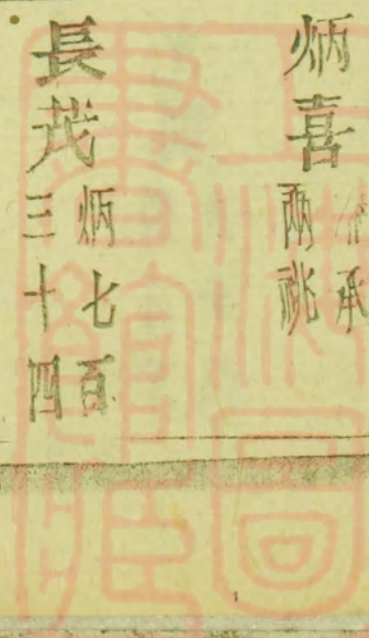 炳喜
承
兩祧
長茂
炳七百
三十四